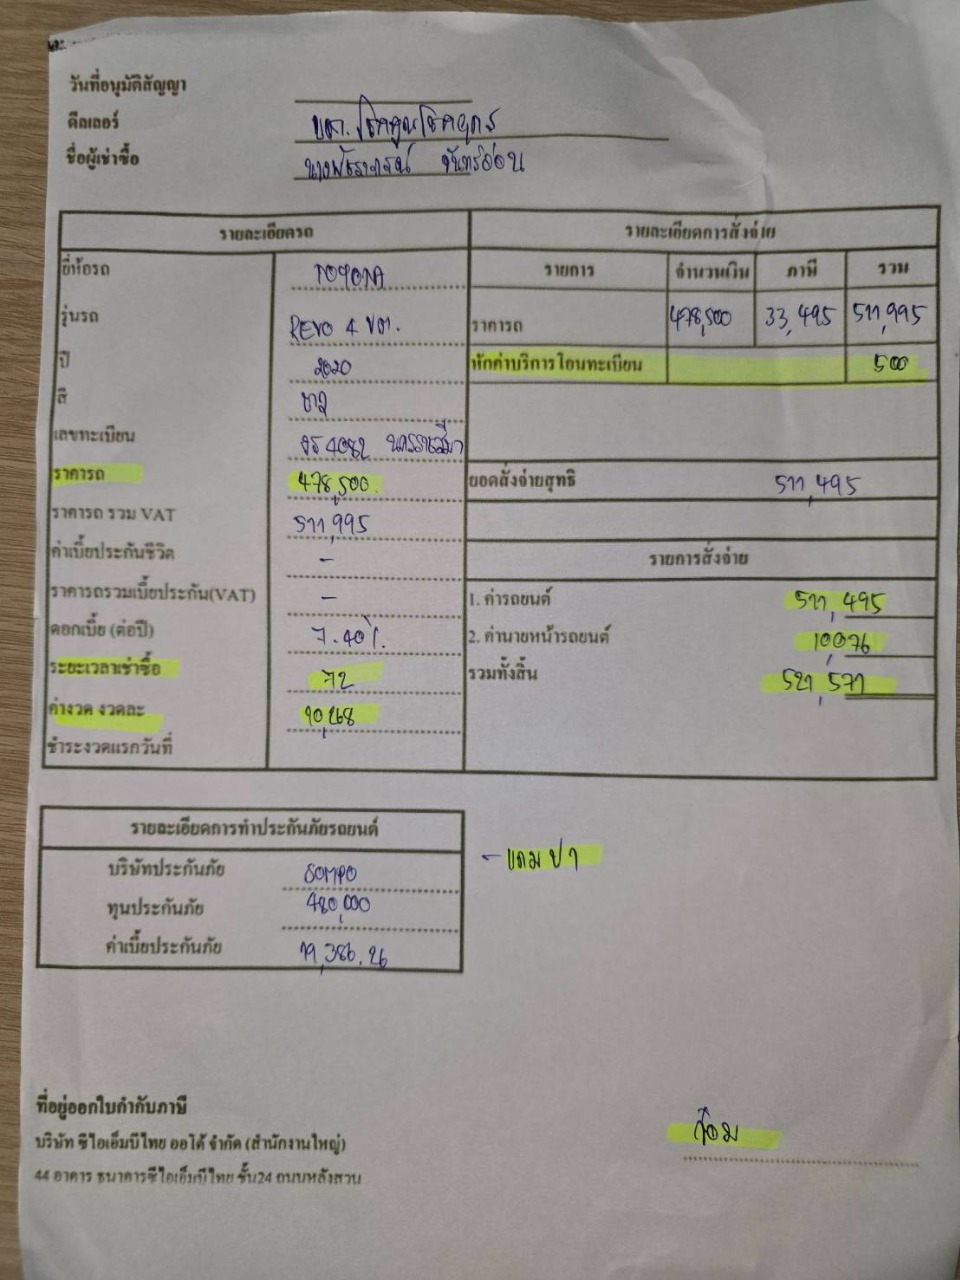 วันที่อนุมัติสัญญา
ดีลเลอร์ บจก. โชคคูณโชค
ชื่อผู้เช่าซื้อ จันทร์อ่อน
รายละเอียดรถ
ยี่ห้อรถ TOYOTA
รุ่นรถ REVO 4 ปต.
ปี 2020
สี
เลขทะเบียน 4082 นครราชสีมา
ราคารถ 478,500.
ราคารถ รวม VAT 511,995
ค่าเบี้ยประกันชีวิต -
ราคารถรวมเบี้ยประกัน(VAT) -
ดอกเบี้ย (ต่อปี) 7.40%.
ระยะเวลาเช่าซื้อ 72
ค่างวด งวดละ 10,268
ชำระงวดแรกวันที่
รายละเอียดการสั่งจ่าย
รายการ จำนวนเงิน ภาษี รวม
ราคารถ 478,500 33,495 511,995
หักค่าบริการโอนทะเบียน 500
ยอดสั่งจ่ายสุทธิ 511,495
รายการสั่งจ่าย
1. ค่ารถยนต์ 511,495
2. ค่านายหน้ารถยนต์ 10,076
รวมทั้งสิ้น 521,571
รายละเอียดการทำประกันภัยรถยนต์
บริษัทประกันภัย SOMPO
ทุนประกันภัย 480,000
ค่าเบี้ยประกันภัย 19,386.26
- แถม ป1
ที่อยู่ออกใบกำกับภาษี
บริษัท ซีไอเอ็มบีไทย ออโต้ จำกัด (สำนักงานใหญ่)
44 อาคาร ธนาคารซีไอเอ็มบีไทย ชั้น24 ถนนหลังสวน